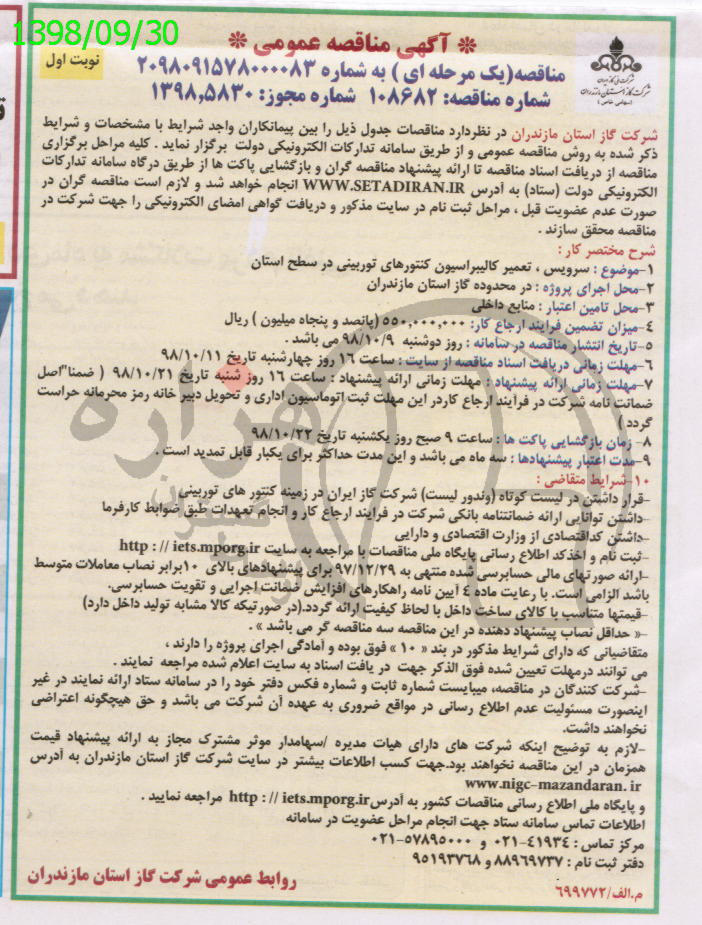 1398/09/30
* آگهی مناقصه عمومی *
نوبت اول
مناقصه(یک مرحله ای ) به شماره ۲۰۹۸۰۹۱۵۷۸۰۰۰۰۸۳
شماره مناقصه: ۱۰۸۶۸۲ شماره مجوز: ۱۳۹۸,۵۸۳۰
شرکت ملی گاز ایران
شرکت گاز استان مازندران
(سهامی خاص)
شرکت گاز استان مازندران در نظردارد مناقصات جدول ذیل را بین پیمانکاران واجد شرایط با مشخصات و شرایط
ذکر شده به روش مناقصه عمومی و از طریق سامانه تدارکات الکترونیکی دولت برگزار نماید . کلیه مراحل برگزاری
مناقصه از دریافت اسناد مناقصه تا ارائه پیشنهاد مناقصه گران و بازگشایی پاکت ها از طریق درگاه سامانه تدارکات
الکترونیکی دولت (ستاد) به آدرس WWW.SETADIRAN.IR انجام خواهد شد و لازم است مناقصه گران در
صورت عدم عضویت قبل ، مراحل ثبت نام در سایت مذکور و دریافت گواهی امضای الکترونیکی را جهت شرکت در
مناقصه محقق سازند .
شرح مختصر کار :
۱-موضوع : سرویس ، تعمیر کالیبراسیون کنتورهای توربینی در سطح استان
۲-محل اجرای پروژه : در محدوده گاز استان مازندران
۳-محل تامین اعتبار : منابع داخلی
۴-میزان تضمین فرایند ارجاع کار: ۵۵۰,۰۰۰,۰۰۰ (پانصد و پنجاه میلیون ) ریال
۵-تاریخ انتشار مناقصه در سامانه : روز دوشنبه ۹۸/۱۰/۹ می باشد .
۶-مهلت زمانی دریافت اسناد مناقصه از سایت : ساعت ۱۶ روز چهارشنبه تاریخ ۹۸/۱۰/۱۱
۷-مهلت زمانی ارائه پیشنهاد : مهلت زمانی ارائه پیشنهاد : ساعت ۱۶ روز شنبه تاریخ ۹۸/۱۰/۲۱ ( ضمنا"اصل
ضمانت نامه شرکت در فرآیند ارجاع کاردر این مهلت ثبت اتوماسیون اداری و تحویل دبیر خانه رمز محرمانه حراست
گردد )
۸- زمان بازگشایی پاکت ها : ساعت ۹ صبح روز یکشنبه تاریخ ۹۸/۱۰/۲۲
۹-مدت اعتبار پیشنهادها : سه ماه می باشد و این مدت حداکثر برای یکبار قابل تمدید است .
۱۰-شرایط متقاضی :
-قرار داشتن در لیست کوتاه (وندور لیست) شرکت گاز ایران در زمینه کنتور های توربینی
-داشتن توانایی ارائه ضمانتنامه بانکی شرکت در فرایند ارجاع کار و انجام تعهدات طبق ضوابط کارفرما
-داشتن کداقتصادی از وزارت اقتصادی و دارایی
-ثبت نام و اخذکد اطلاع رسانی پایگاه ملی مناقصات با مراجعه به سایت http : // iets.mporg.ir
-ارائه صورتهای مالی حسابرسی شده منتهی به ۹۷/۱۲/۲۹ برای پیشنهادهای بالای ۱۰برابر نصاب معاملات متوسط
باشد الزامی است. با رعایت ماده ٤ آیین نامه راهکارهای افزایش ضمانت اجرایی و تقویت حسابرسی.
-قیمتها متناسب با کالای ساخت داخل با لحاظ کیفیت ارائه گردد.(در صورتیکه کالا مشابه تولید داخل دارد)
-« حداقل نصاب پیشنهاد دهنده در این مناقصه سه مناقصه گر می باشد » .
متقاضیانی که دارای شرایط مذکور در بند « ۱۰ » فوق بوده و آمادگی اجرای پروژه را دارند ،
می توانند درمهلت تعیین شده فوق الذکر جهت در یافت اسناد به سایت اعلام شده مراجعه نمایند .
-شرکت کنندگان در مناقصه، میبایست شماره ثابت و شماره فکس دفتر خود را در سامانه ستاد ارائه نمایند در غیر
اینصورت مسئولیت عدم اطلاع رسانی در مواقع ضروری به عهده آن شرکت می باشد و حق هیچگونه اعتراضی
نخواهند داشت.
-لازم به توضیح اینکه شرکت های دارای هیات مدیره /سهامدار موثر مشترک مجاز به ارائه پیشنهاد قیمت
همزمان در این مناقصه نخواهند بود.جهت کسب اطلاعات بیشتر در سایت شرکت گاز استان مازندران به آدرس
www.nigc-mazandaran. ir
و پایگاه ملی اطلاع رسانی مناقصات کشور به آدرس http : // iets.mporg.ir مراجعه نمایید .
اطلاعات تماس سامانه ستاد جهت انجام مراحل عضویت در سامانه
مرکز تماس : ۴۱۹۳۴-۰۲۱ و ۵۷۸۹۵۰۰۰-۰۲۱
دفتر ثبت نام : ۸۸۹۶۹۷۳۷ و ۹۵۱۹۳۷۶۸
روابط عمومی شرکت گاز استان مازندران
م.الف/۶۹۹۷۷۲